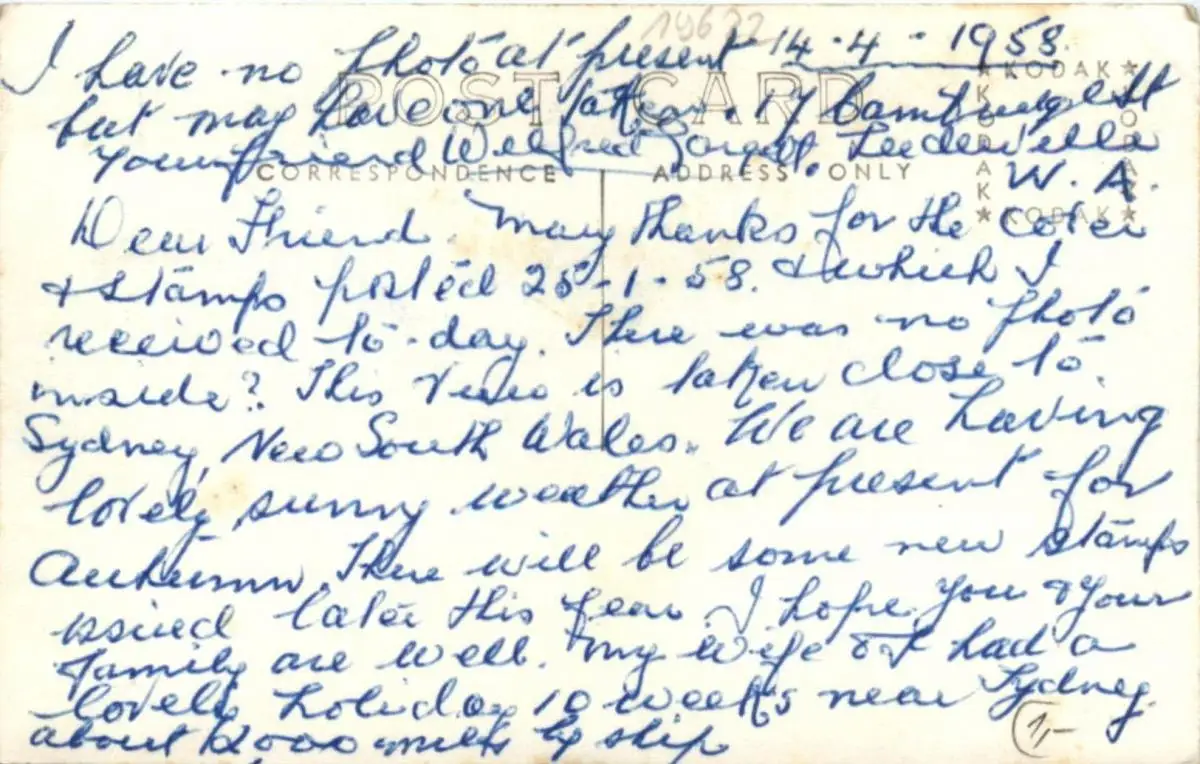 19622
14-4-1958.
I have no photo at present
but may have one taken. 17
your friend Wilfred Leederville
W. A.
POST CARD
CORRESPONDENCE
ADDRESS ONLY
KODAK
KODAK
KODAK
KODAK
Dear Friend. Many thanks for the cover
& stamps posted 25-1-58. & which I
received to-day. There was no photo
inside? This View is taken close to
Sydney, New South Wales. We are having
lovely sunny weather at present for
Autumn. There will be some new stamps
issued later this year. I hope you & your
family are well. My wife & I had a
lovely holiday 10 weeks near Sydney.
about 2000 miles by ship
1,-